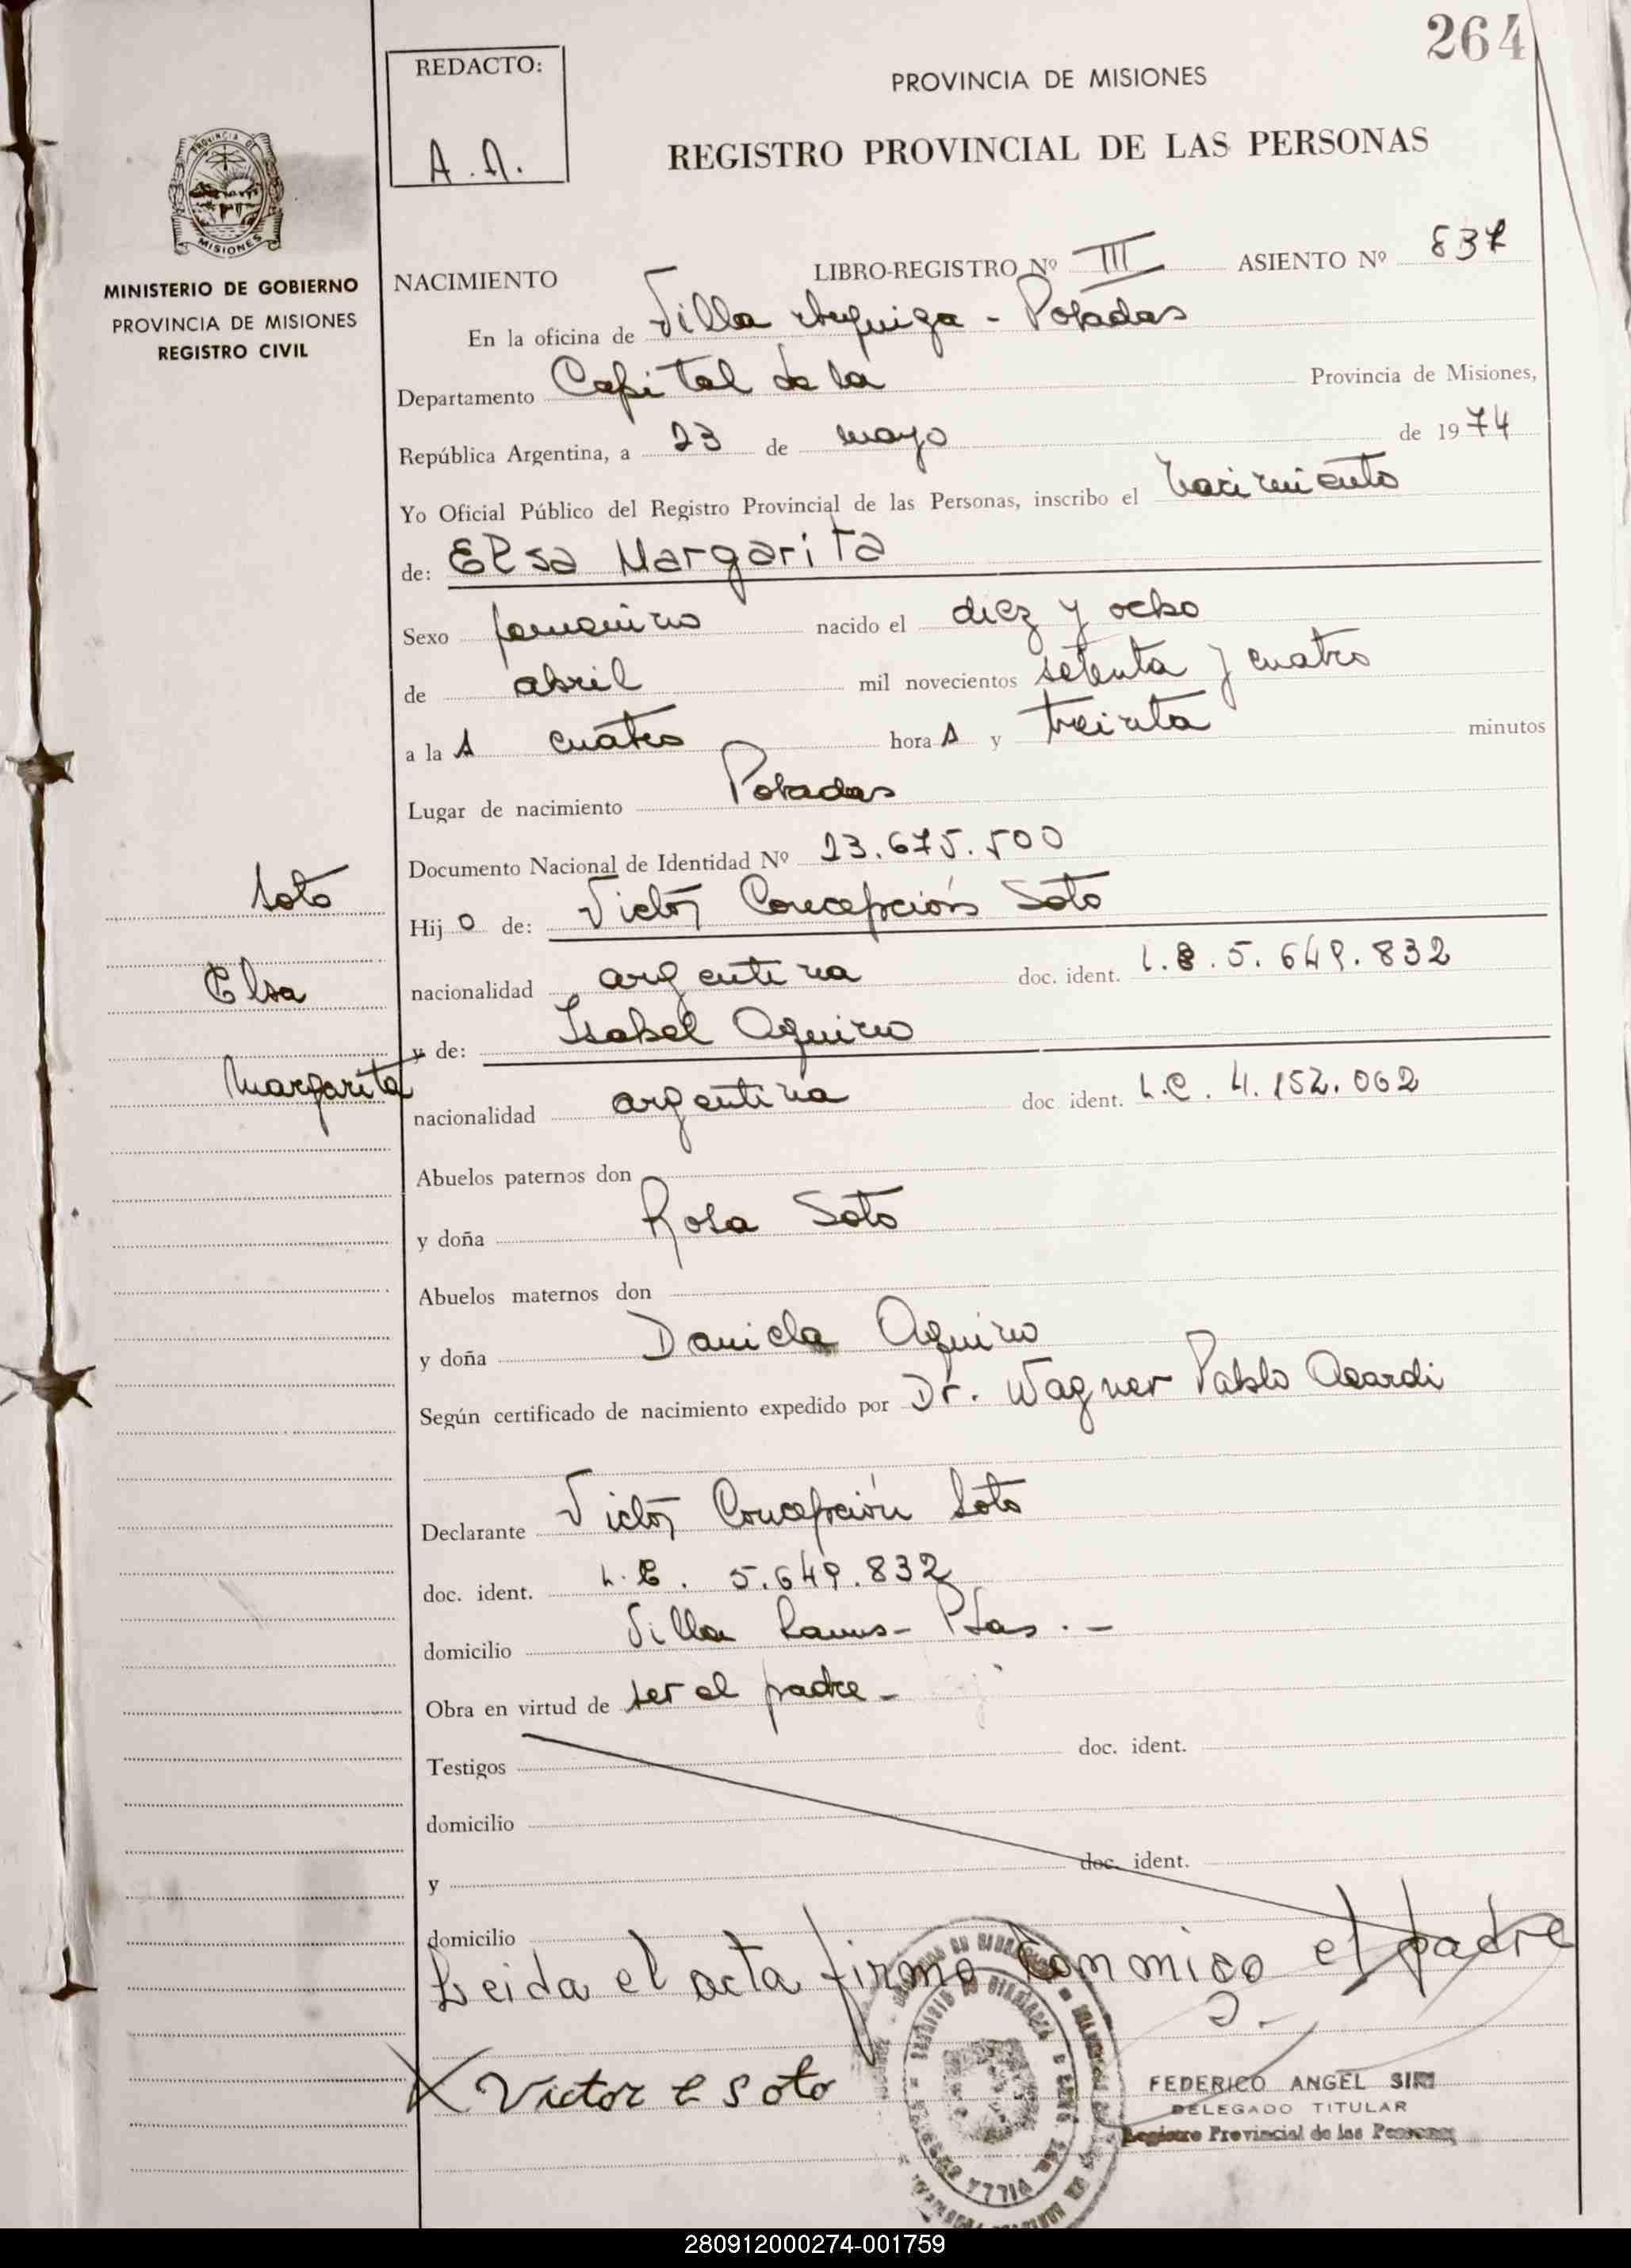 264
REDACTO:
A.A.
PROVINCIA DE MISIONES
REGISTRO PROVINCIAL DE LAS PERSONAS
PROVINCIA DE
MISIONES
MINISTERIO DE GOBIERNO
PROVINCIA DE MISIONES
REGISTRO CIVIL
NACIMIENTO LIBRO-REGISTRO Nº III ASIENTO Nº 837
En la oficina de Villa Urquiza - Posadas
Departamento Capital de la Provincia de Misiones,
República Argentina, a 23 de mayo de 1974
Yo Oficial Público del Registro Provincial de las Personas, inscribo el nacimiento
de: Elsa Margarita
Sexo femenino nacido el diez y ocho
de abril mil novecientos setenta y cuatro
a la s cuatro hora s y treinta minutos
Lugar de nacimiento Posadas
Documento Nacional de Identidad Nº 23.675.500
Soto
Hij o de: Victor Concepción Soto
Elsa
nacionalidad argentina doc. ident. L.E. 5.649.832
y de: Isabel Aquino
Margarita
nacionalidad argentina doc. ident. L.C. 4.152.062
Abuelos paternos don
y doña Rosa Soto
Abuelos maternos don
y doña Daniela Aquino
Según certificado de nacimiento expedido por Dr. Wagner Pablo
Declarante Victor Concepción Soto
doc. ident. L.E. 5.649.832
domicilio Villa Lanus - Pdas.-
Obra en virtud de ser el padre-
Testigos doc. ident.
domicilio
y doc. ident.
domicilio
Leida el acta firmo conmigo el padre
Victor C Soto
FEDERICO ANGEL SIRI
DELEGADO TITULAR
Registro Provincial de las Personas
280912000274-001759